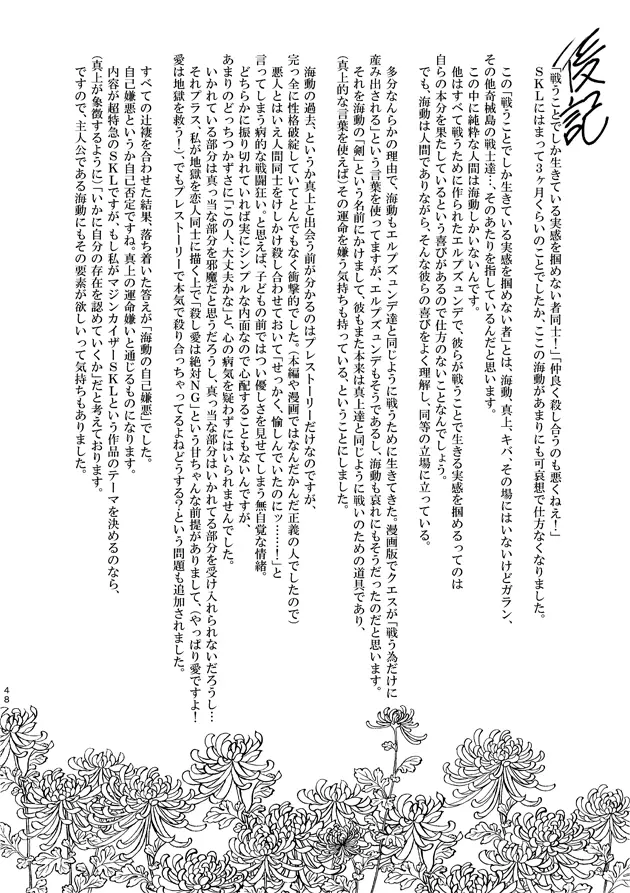 後記
「戦うことでしか生きている実感を掴めない者同士！」「仲良く殺し合うのも悪くねえ！」
ＳＫＬにはまって３ヶ月くらいのことでしたか、ここの海動があまりにも可哀想で仕方なくなりました。
この「戦うことでしか生きている実感を掴めない者」とは、海動、真上、キバ、その場にはいないけどガラン、
その他奇械島の戦士達…、そのあたりを指しているんだと思います。
この中に純粋な人間は海動しかいないんです。
他はすべて戦うために作られたエルプズュンデで、彼らが戦うことで生きる実感を掴めるってのは
自らの本分を果たしているという喜びがあるので仕方のないことなんでしょう。
でも、海動は人間でありながら、そんな彼らの喜びをよく理解し、同等の立場に立っている。
多分なんらかの理由で、海動もエルプズュンデ達と同じように戦うために生きてきた。漫画版でクエスが「戦う為だけに
産み出される」という言葉を使ってますが、エルプズュンデもそうであるし、海動も哀れにもそうだったのだと思います。
それを海動の「剣」という名前にかけまして、彼もまた本来は真上達と同じように戦いのための道具であり、
（真上的な言葉を使えば）その運命を嫌う気持ちも持っている、ということにしました。
海動の過去、というか真上と出会う前が分かるのはプレストーリーだけなのですが、
完っ全に性格破綻していてとんでもなく衝撃的でした。（本編や漫画ではなんだかんだ正義の人でしたので）
悪人とはいえ人間同士をけしかけ殺し合わせておいて「せっかく、愉しんでいたのにッ……！」と
言ってしまう病的な戦闘狂い。と思えば、子どもの前ではつい優しさを見せてしまう無自覚な情緒。
どちらかに振り切れていれば実にシンプルな内面なので心配することもないんですが、
あまりのどっちつかずさに「この人、大丈夫かな」と、心の病気を疑わずにはいられませんでした。
いかれている部分は真っ当な部分を邪魔だと思うだろうし、真っ当な部分はいかれてる部分を受け入れられないだろうし…
それプラス、私が地獄を恋人同士に描く上で「殺し愛は絶対ＮＧ」という甘ちゃんな前提がありまして、（やっぱり愛ですよ！
愛は地獄を救う！）、でもプレストーリーで本気で殺り合っちゃってるよねどうする？という問題も追加されました。
すべての辻褄を合わせた結果、落ち着いた答えが「海動の自己嫌悪」でした。
自己嫌悪というか自己否定ですね。真上の運命嫌いと通じるものになります。
内容が超特急のＳＫＬですが、もし私がマジンカイザーＳＫＬという作品のテーマを決めるのなら、
（真上が象徴するように）「いかに自分の存在を認めていくか」だと考えております。
ですので、主人公である海動にもその要素が欲しいって気持ちもありました。
48